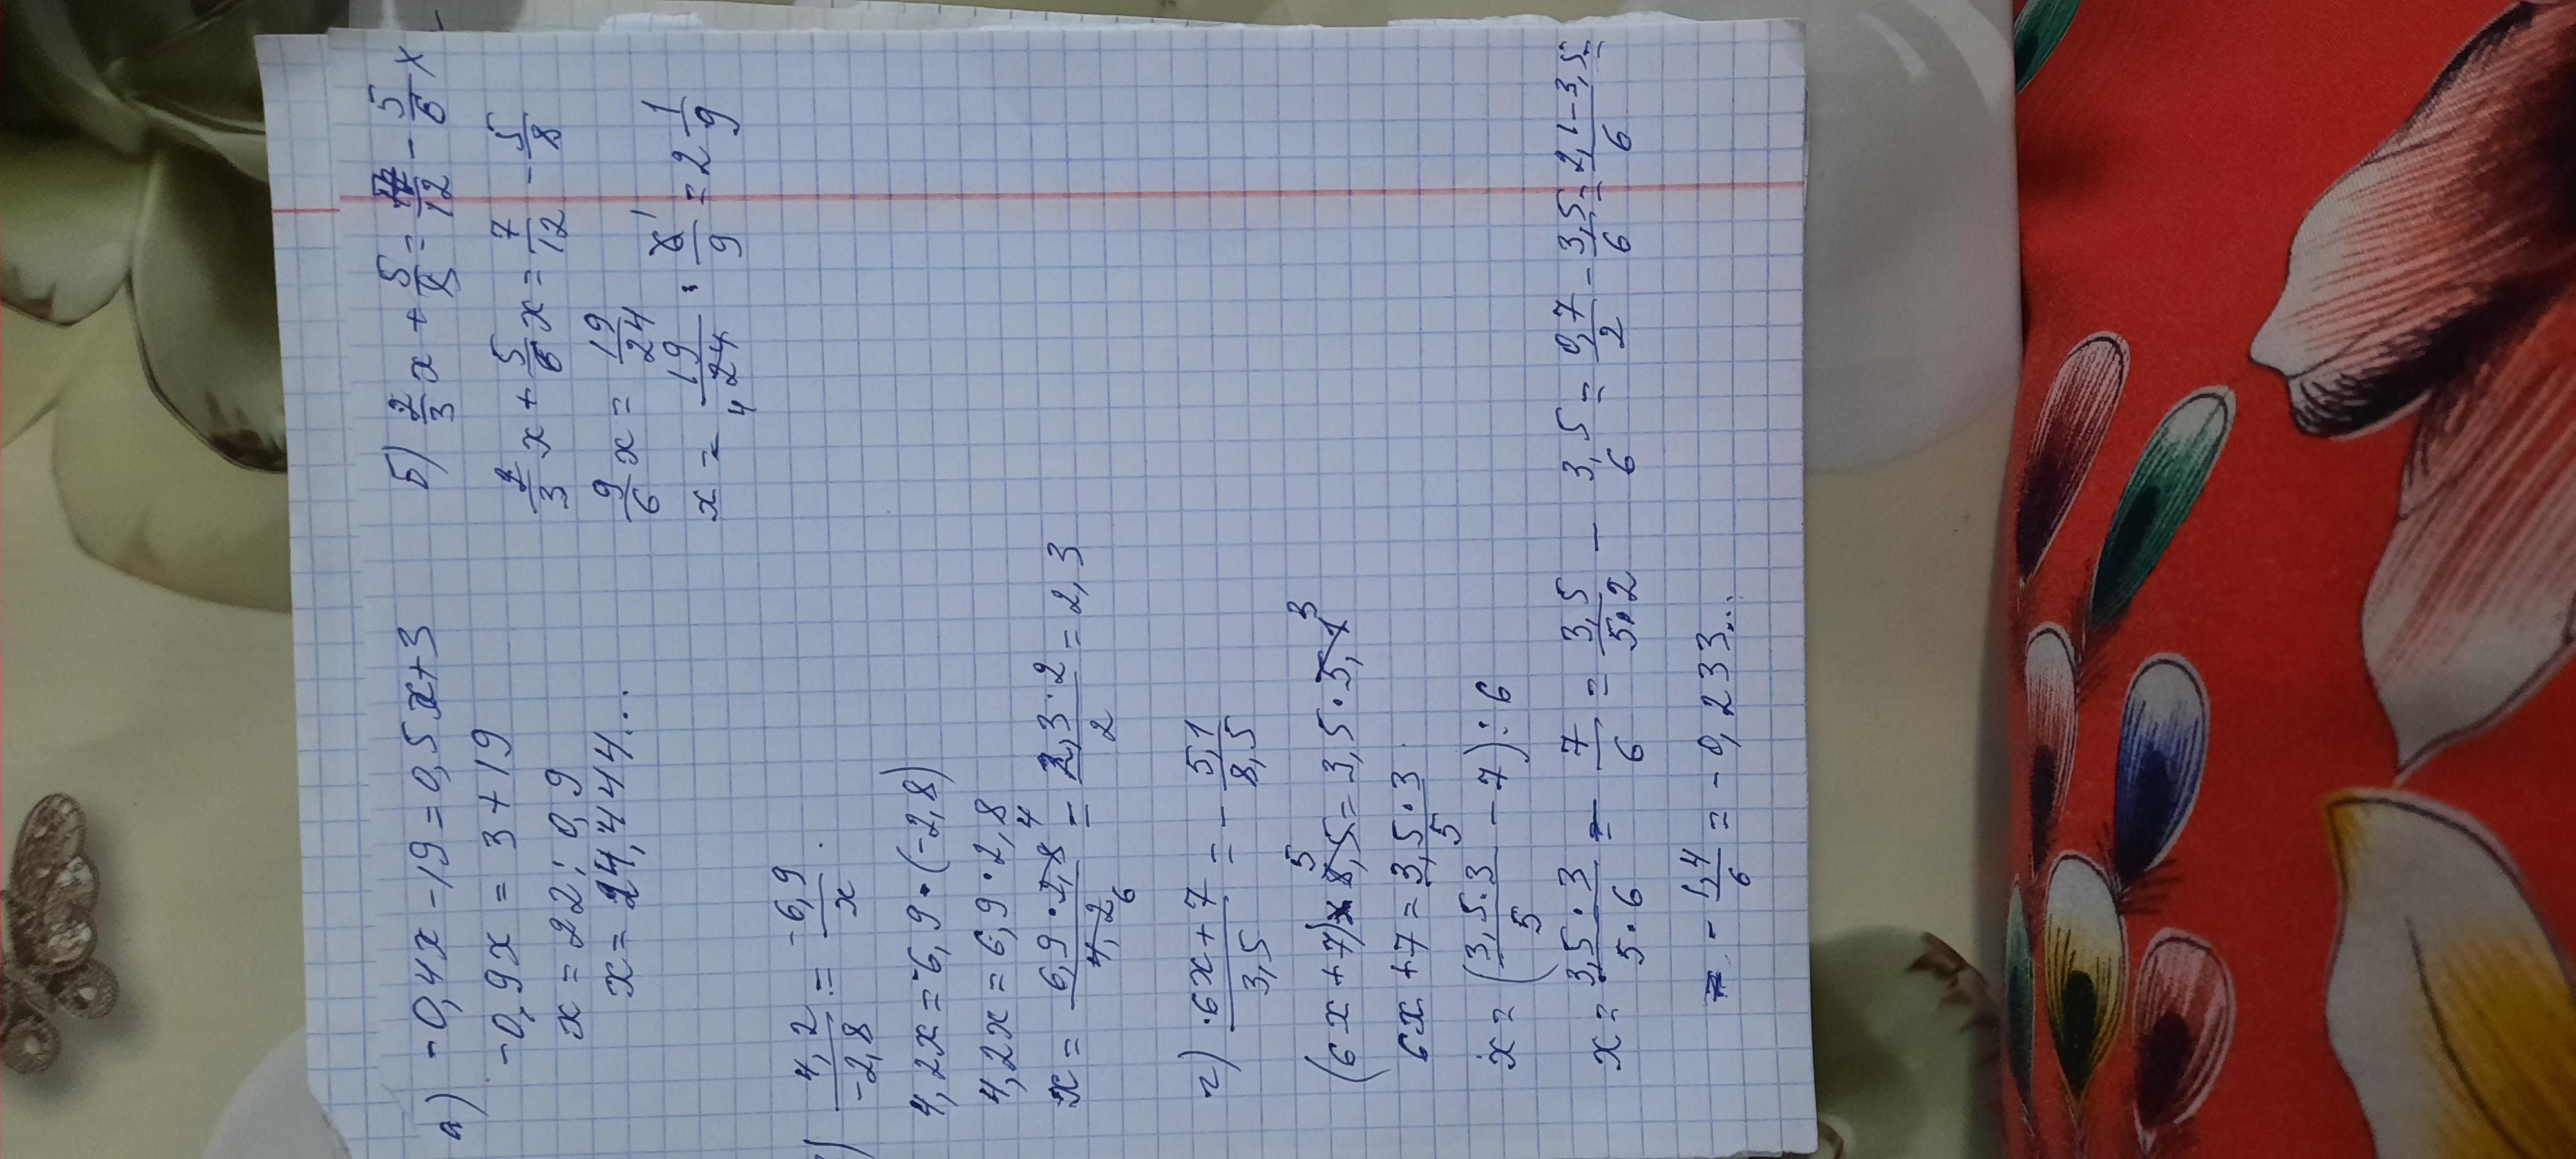 а) -0,4x - 19 = 0,5x + 3
-0,9x = 3 + 19
x = 22 : 0,9
x = 24,444...
б) 2/3 x + 5/8 = 7/12 - 5/6 x
2/3 x + 5/6 x = 7/12 - 5/8
9/6 x = 19/24
x = 19/24 : 6/9 = 2 1/9
) 4,2/-2,8 = -6,9/x
4,2x = -6,9 · (-2,8)
4,2x = 6,9 · 2,8
x = 6,9 · 2,8/4,2 = 2,3 · 2/2 = 2,3
г) 6x + 7/3,5 = - 5,1/8,5
(6x + 7) 8,5 = 3,5 · 5,1
6x + 7 = 3,5 · 3/5
x = (3,5 · 3/5 - 7) : 6
x = 3,5 · 3/5 · 6 - 7/6 = 3,5/5 · 2 - 3,5/6 = 0,7/2 - 3,5/6 = 2,1 - 3,5/6 =
= - 1,4/6 = - 0,233...